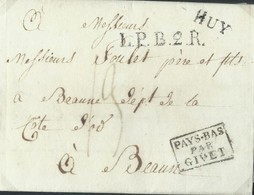 À Messieurs
HUY
L.P.B.2.R.
Messieurs père et fils
à Beaune dépt de la
Côte d'or
PAYS-BAS
PAR
GIVET
À Beaune